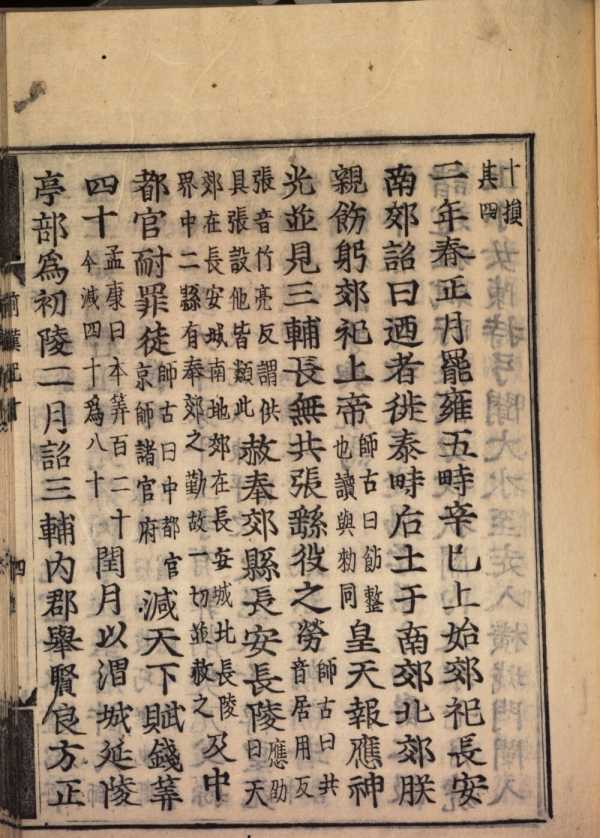 十損
其四
二年春正月罷雍五畤辛巳上始郊祀長安
南郊詔曰迺者徙泰畤后土于南郊北郊朕
親飭躬郊祀上帝師古曰飭整也讀與勑同皇天報應神
光並見三輔長無共張繇役之勞師古曰共音居用反
張音竹亮反謂供具張設他皆類此赦奉郊縣長安長陵應劭曰天
郊在長安城南地郊在長安城北長陵界中二縣有奉郊之勤故一切並赦之及中
都官耐罪徒師古曰中都官京師諸官府減天下賦錢筭
四十孟康曰本筭百二十今減四十爲八十閏月以渭城延陵
亭部爲初陵二月詔三輔内郡舉賢良方正
四